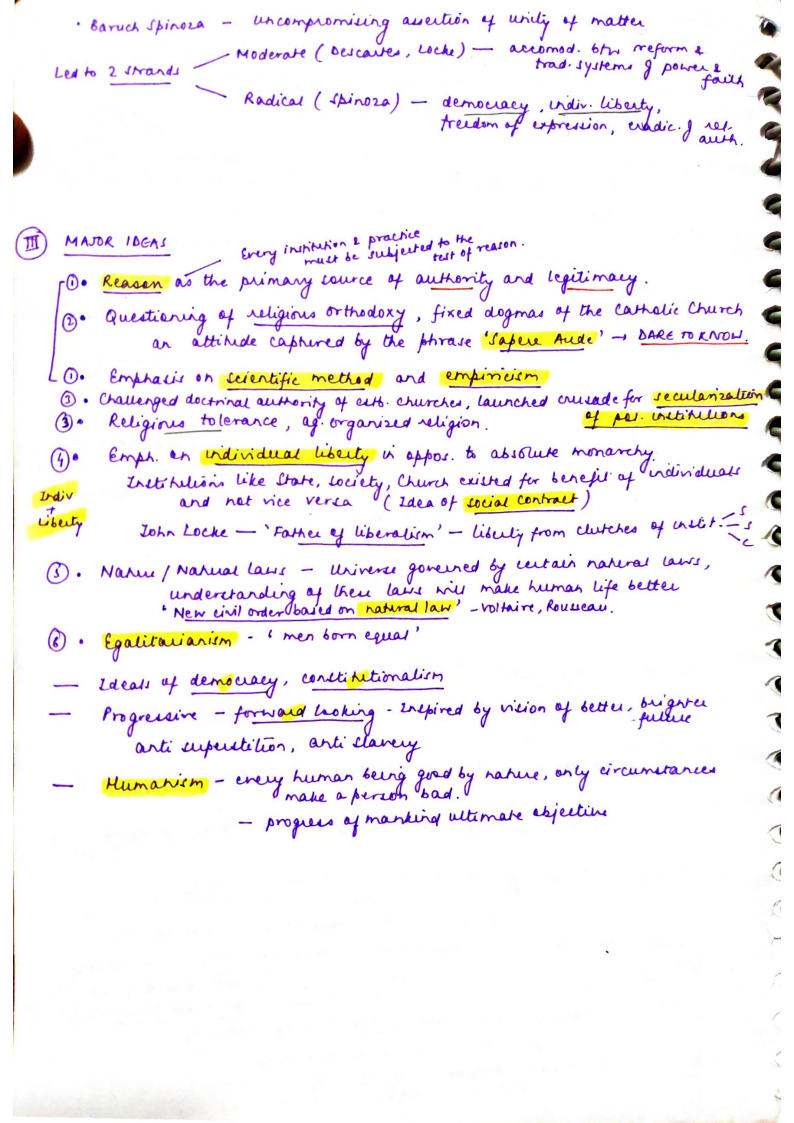 • Baruch Spinoza – uncompromising assertion of unity of matter
Led to 2 strands
Moderate (Descartes, Locke) — accomod. btw reform &
trad. systems of power &
faith
Radical (Spinoza) — democracy, indiv. liberty,
freedom of expression, eradic. of rel.
auth.
III MAJOR IDEAS
Every institution & practice
must be subjected to the
test of reason.
① • Reason as the primary source of authority and legitimacy.
② • Questioning of religious orthodoxy, fixed dogmas of the Catholic Church
an attitude captured by the phrase 'Sapere Aude' → DARE TO KNOW.
① • Emphasis on scientific method and empiricism
③ • Challenged doctrinal authority of estb. churches, launched crusade for secularization
of pol. institutions
③ • Religious tolerance, ag. organized religion.
④ • Emph. on individual liberty in oppos. to absolute monarchy.
Institutions like State, society, Church existed for benefit of individuals
and not vice versa (Idea of social contract)
Indiv
+
Liberty
John Locke — 'Father of liberalism' – liberty from clutches of instit. – S
S
C
⑤ • Nature / Natural laws – Universe governed by certain natural laws,
understanding of these laws will make human life better
'New civil order based on natural law' – Voltaire, Rousseau.
⑥ • Egalitarianism - 'men born equal'
— Ideals of democracy, constitutionalism
— Progressive – forward looking - Inspired by vision of better, brighter
future
anti superstition, anti slavery
— Humanism – every human being good by nature, only circumstances
make a person bad.
– progress of mankind ultimate objective